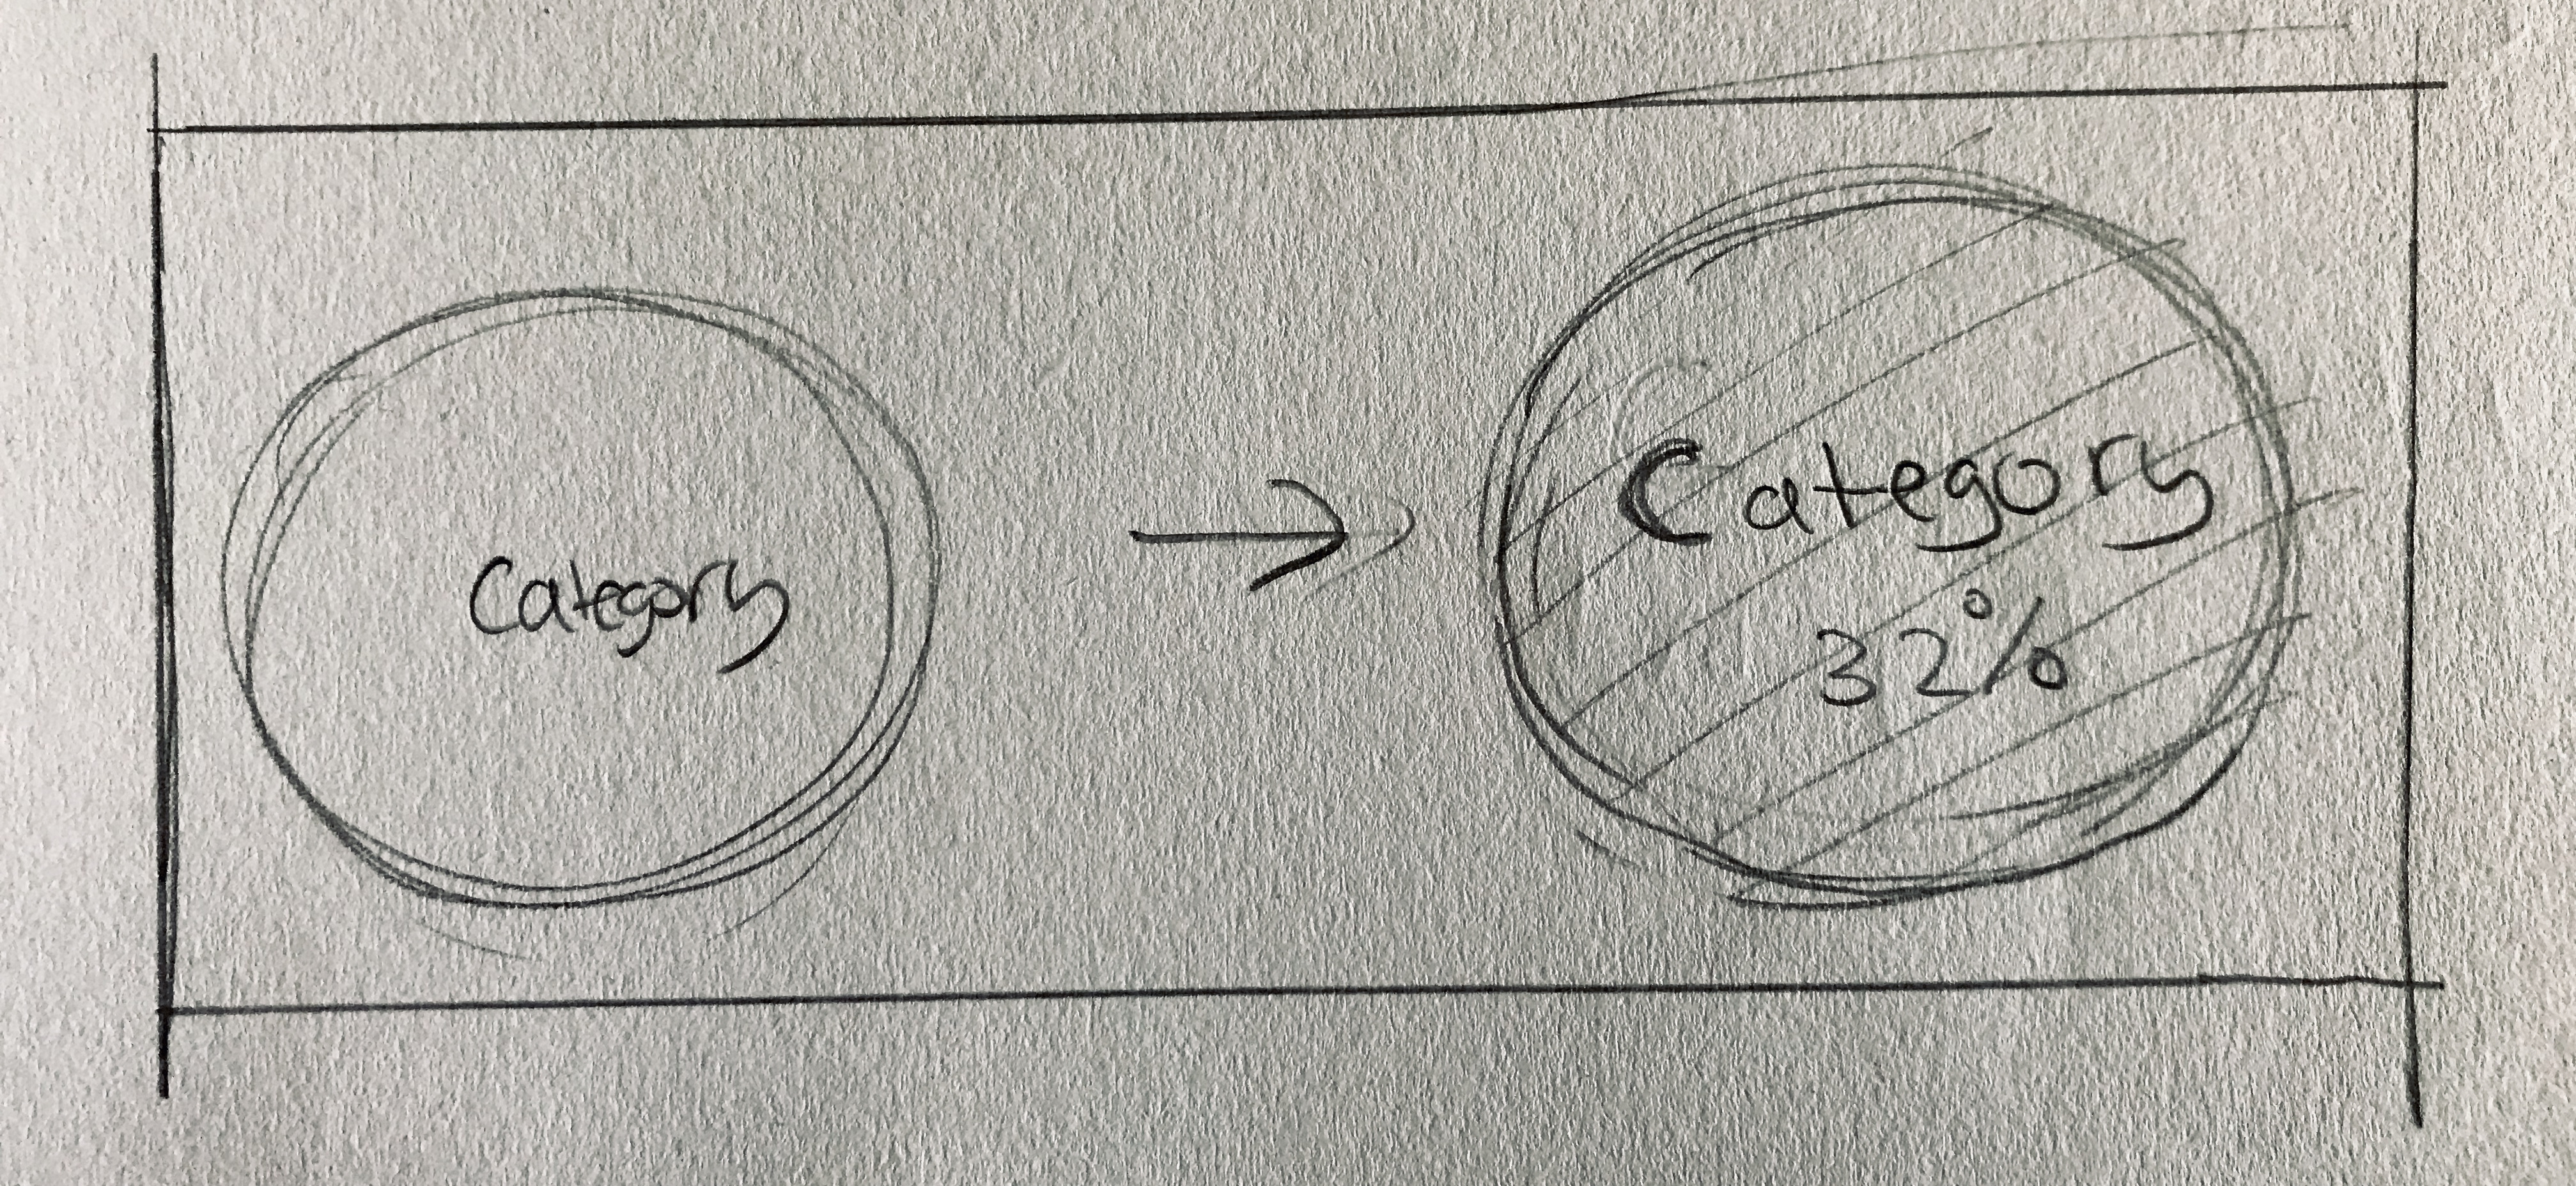 Category
Category
32%